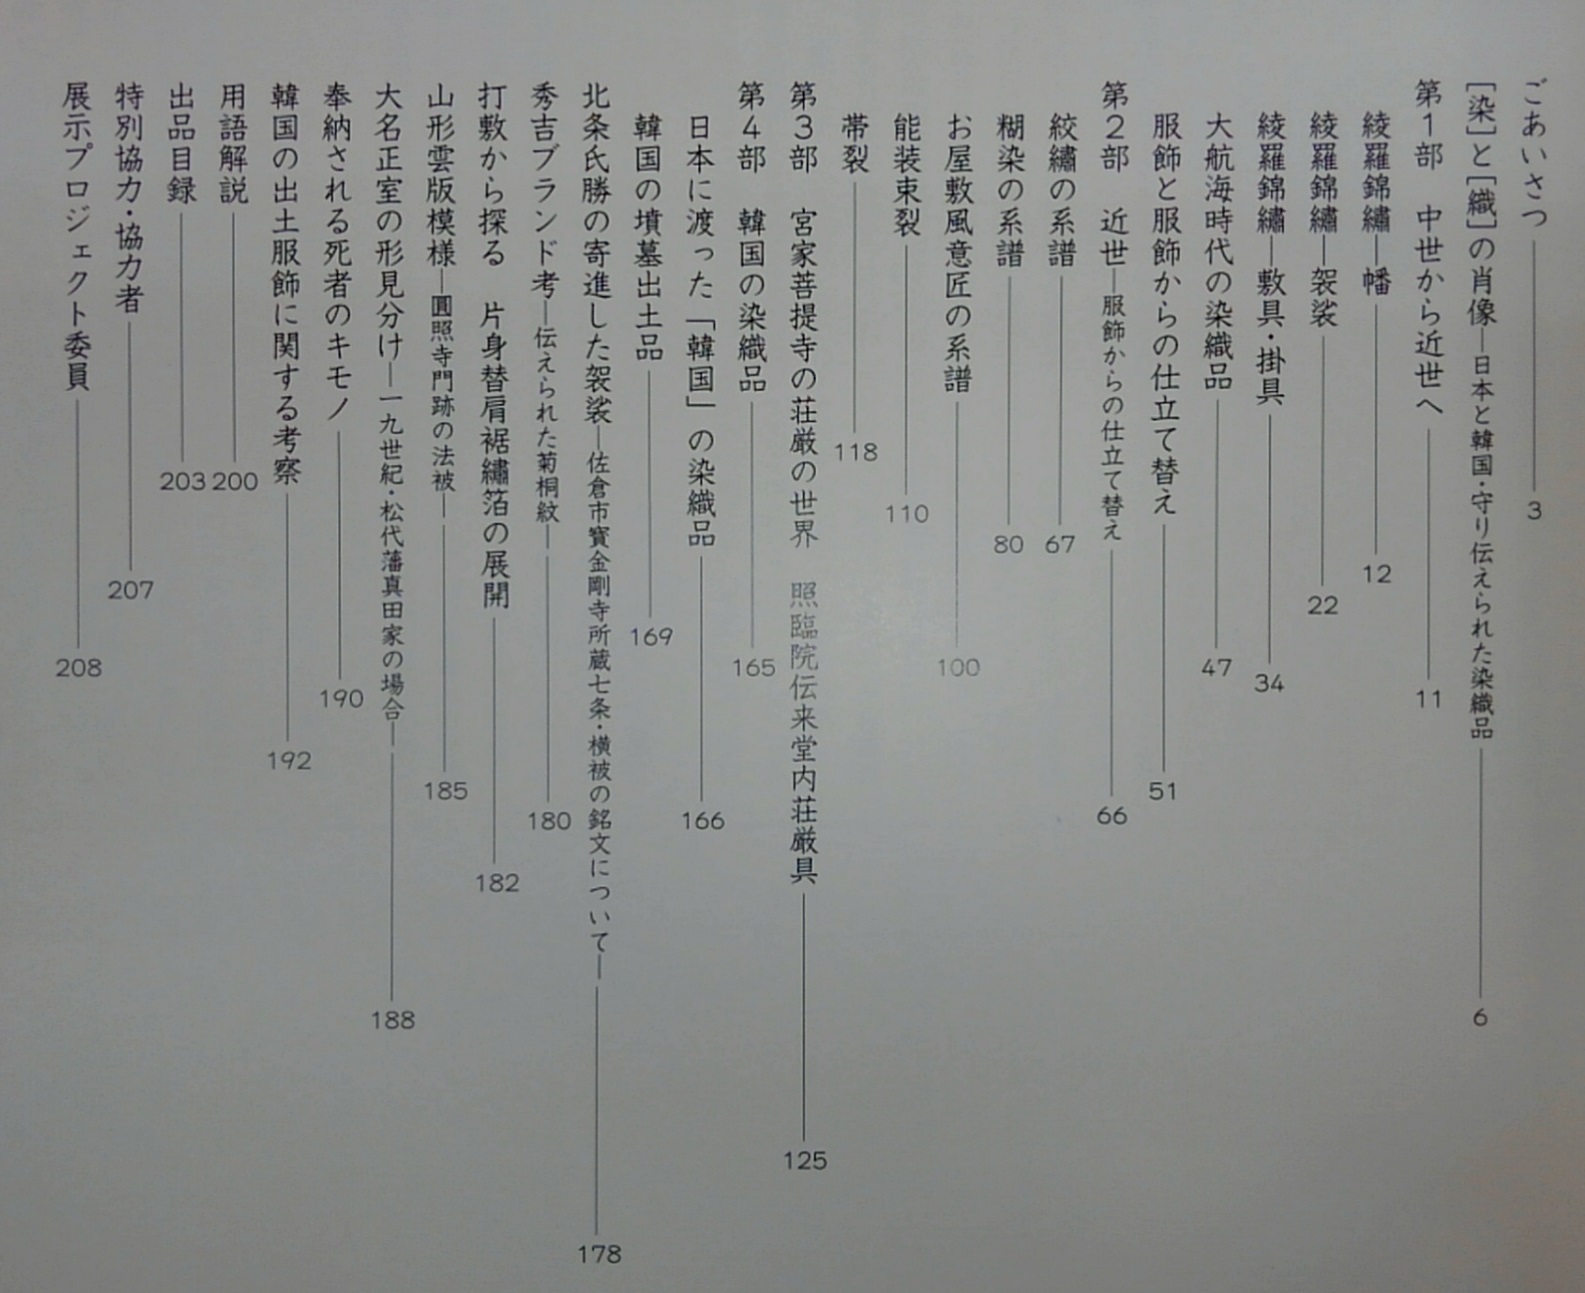 ごあいさつ 3
[染]と[織]の肖像―日本と韓国・守り伝えられた染織品 6
第1部 中世から近世へ 11
綾羅錦繡―幡 12
綾羅錦繡―袈裟 22
綾羅錦繡―敷具・掛具 34
大航海時代の染織品 47
服飾と服飾からの仕立て替え 51
第2部 近世―服飾からの仕立て替え 66
絞繡の系譜 67
糊染の系譜 80
お屋敷風意匠の系譜 100
能装束裂 110
帯裂 118
第3部 宮家菩提寺の荘厳の世界 照臨院伝来堂内荘厳具 125
第4部 韓国の染織品 165
日本に渡った「韓国」の染織品 166
韓国の墳墓出土品 169
北条氏勝の寄進した袈裟―佐倉市寳金剛寺所蔵七条・横被の銘文について― 178
秀吉ブランド考―伝えられた菊桐紋― 180
打敷から探る 片身替肩裾繡箔の展開 182
山形雲版模様―圓照寺門跡の法被― 185
大名正室の形見分け―一九世紀・松代藩真田家の場合― 188
奉納される死者のキモノ 190
韓国の出土服飾に関する考察 192
用語解説 200
出品目録 203
特別協力・協力者 207
展示プロジェクト委員 208